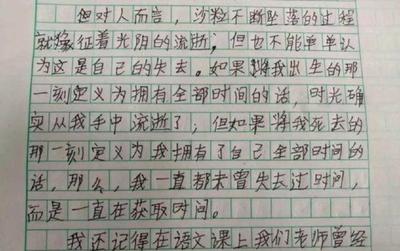 但对人而言，沙粒不断坠落的过程
就象征着光阴的流逝；但也不能单单认
为这是自己的失去。如果将我出生的那
一刻定义为拥有全部时间的话，时光确
实从我手中流逝了，但如果将我死去的
那一刻定义为我拥有了自己全部时间的
话，那么，我一直都未曾失去过时间，
而是一直在获取时间。
我还记得在语文课上我们老师曾经